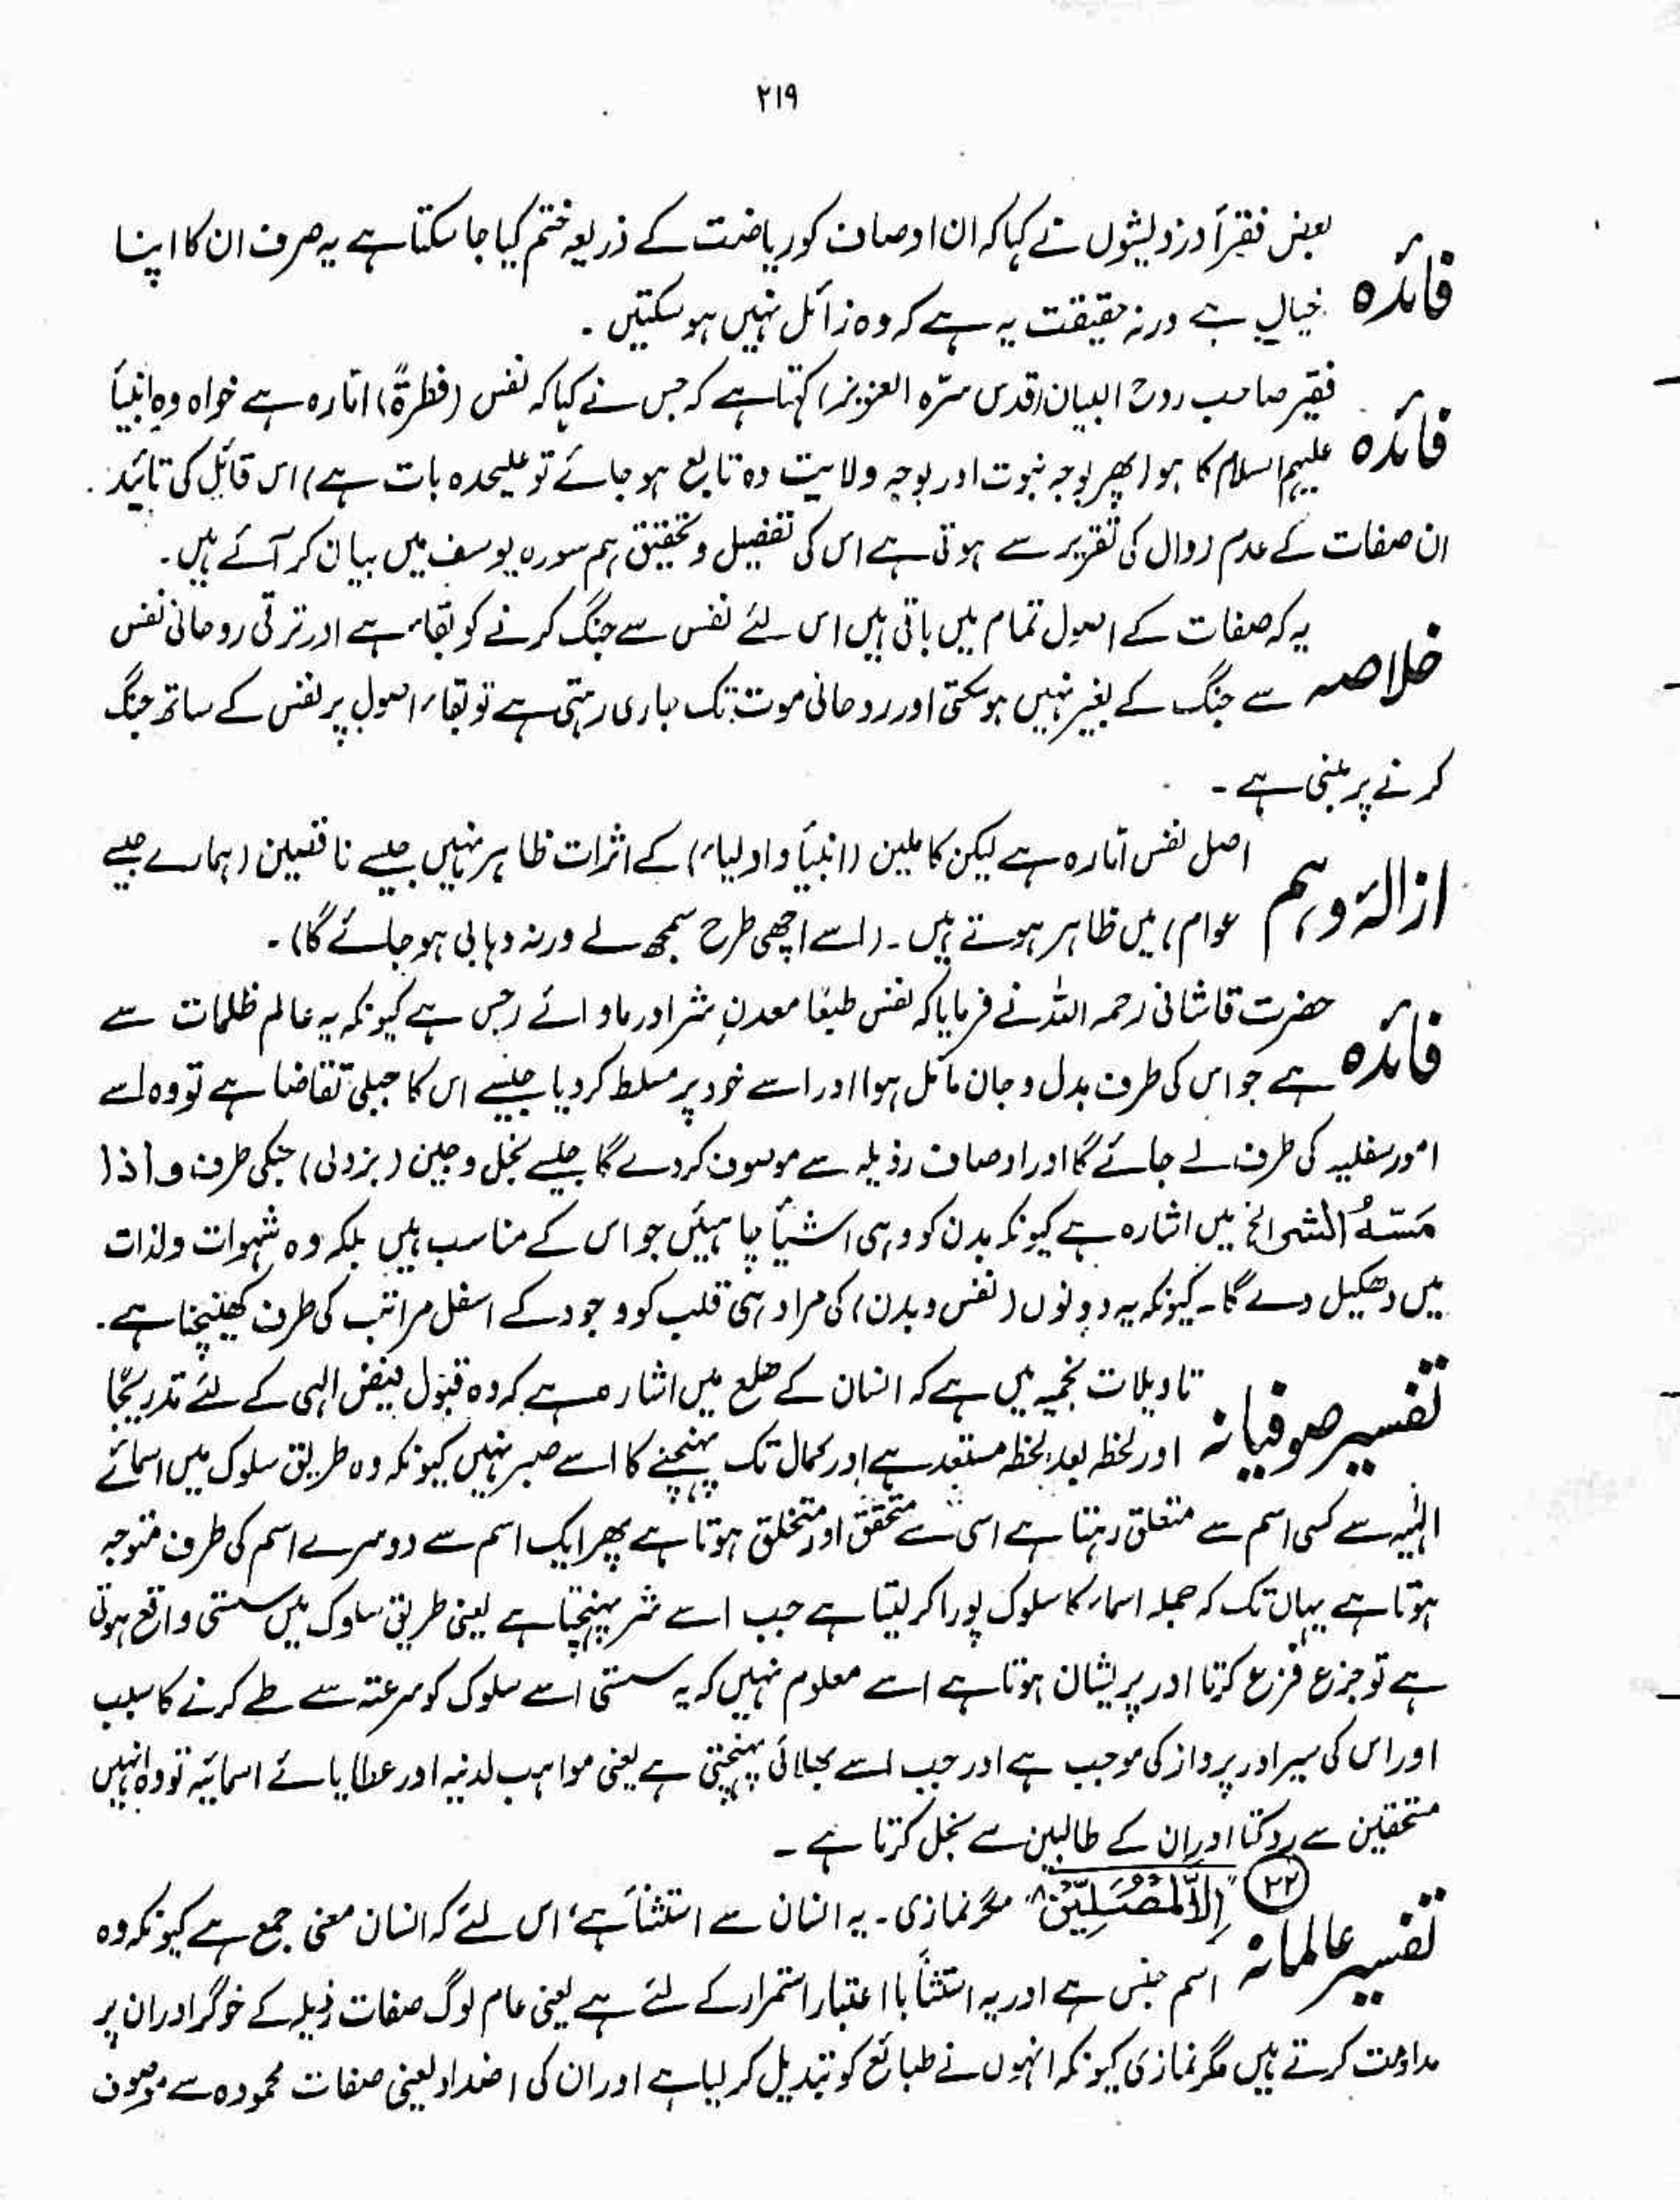 ٢١٩
بعض فقرأ درویشوں نے کہا کہ ان اوصاف کو ریاضت کے ذریعہ ختم کیا جا سکتا ہے یہ صرف ان کا اپنا
فائدہ
خیال ہے ورنہ حقیقت یہ ہے کہ وہ زائل نہیں ہو سکتیں ۔
فقیر صاحب روح البیان (قدس سرّہ العزیز) کہتا ہے کہ جس نے کہا کہ نفس (فطرۃً) امّارہ ہے خواہ وہ انبیأ
فائدہ
علیہم السلام کا ہو (پھر بوجہ نبوت اور بوجہ ولایت وہ تابع ہو جائے تو علیحدہ بات ہے) اس قائل کی تائید
ان صفات کے عدم زوال کی تقریر سے ہوتی ہے اس کی تفصیل و تحقیق ہم سورہ یوسف میں بیان کر آئے ہیں ۔
یہ کہ صفات کے اصول تمام میں باقی ہیں اس لئے نفس سے جنگ کرنے کو بقاء ہے اور ترقی روحانی نفس
خلاصہ
سے جنگ کے بغیر نہیں ہو سکتی اور روحانی موت تک جاری رہتی ہے تو بقاء اصول پر نفس کے ساتھ جنگ
کرنے پر مبنی ہے ۔
اصل نفس امّارہ ہے لیکن کاملین (انبیأ و اولیاء) کے اثرات ظاہر نہیں جیسے ناقصین (ہمارے جیسے
ازالۂ وہم
عوام) میں ظاہر ہوتے ہیں ۔ (اسے اچھی طرح سمجھ لے ورنہ وہابی ہو جائے گا) ۔
حضرت قاشانی رحمہ اللہ نے فرمایا کہ نفس طبعًا معدنِ شر اور ماوائے رجس ہے کیونکہ یہ عالم ظلمات سے
فائدہ
ہے جو اس کی طرف بدل و جان مائل ہوا اور اسے خود پر مسلط کر دیا جیسے اس کا جبلی تقاضا ہے تو وہ اسے
امور سفلیہ کی طرف لے جائے گا اور اوصاف رذیلہ سے موصوف کر دے گا جیسے بخل و جبن (بزدلی) جنکی طرف و اذا
مَسَّہُ الشر الخ میں اشارہ ہے کیونکہ بدن کو وہی اشیأ چاہئیں جو اس کے مناسب ہیں بلکہ وہ شہوات و لذات
میں دھکیل دے گا ۔ کیونکہ یہ دونوں (نفس و بدن) کی مراد ہی قلب کو وجود کے اسفل مراتب کی طرف کھینچنا ہے ۔
تاویلات نجمیہ میں ہے کہ انسان کے ھلع میں اشارہ ہے کہ وہ قبول فیض الہی کے لئے تدریجًا
تفسیر صوفیانہ
اور لحظہ بعد لحظہ مستعد ہے اور کمال تک پہنچنے کا اسے صبر نہیں کیونکہ وہ طریق سلوک میں اسمائے
الٰہیہ سے کسی اسم سے متعلق رہتا ہے اسی سے متحقق اور متخلق ہوتا ہے پھر ایک اسم سے دوسرے اسم کی طرف متوجہ
ہوتا ہے یہاں تک کہ جملہ اسماء کا سلوک پورا کر لیتا ہے جب اسے شر پہنچتا ہے یعنی طریق سلوک میں سستی واقع ہوتی
ہے تو جزع فزع کرتا اور پریشان ہوتا ہے اسے معلوم نہیں کہ یہ سستی اسے سلوک کو سرعتہ سے طے کرنے کا سبب
اور اس کی سیر اور پرواز کی موجب ہے اور جب اسے بھلائی پہنچتی ہے یعنی مواہب لدنیہ اور عطایائے اسمائیہ تو وہ انہیں
مستحقین سے روکتا اور ان کے طالبین سے بخل کرتا ہے ۔
(٢٢) "اِلَّا الْمُصَلِّيْنَ" مگر نمازی ۔ یہ انسان سے استثنأ ہے، اس لئے کہ انسان معنی جمع ہے کیونکہ وہ
تفسیر عالمانہ
اسم جنس ہے اور یہ استثنأ با اعتبار استمرار کے لئے ہے یعنی عام لوگ صفات ذیلہ کے خوگر اور ان پر
مداومت کرتے ہیں مگر نمازی کیونکہ انہوں نے طبائع کو تبدیل کر لیا ہے اور ان کی اضداد یعنی صفات محمودہ سے موصوف